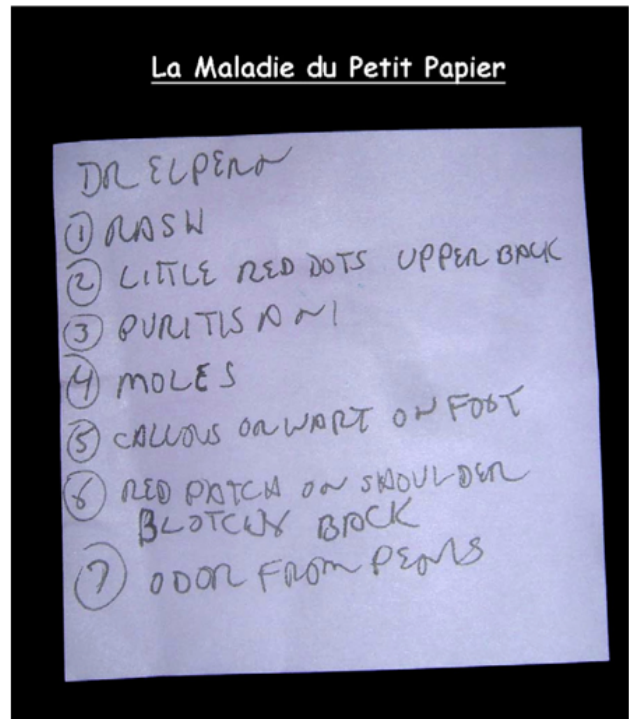 La Maladie du Petit Papier
DR ELPERN
① RASH
② LITTLE RED DOTS UPPER BACK
③ PURITIS ANI
④ MOLES
⑤ CALLOUS OR WART ON FOOT
⑥ RED PATCH ON SHOULDER
BLOTCHY BACK
⑦ ODOR FROM PENIS